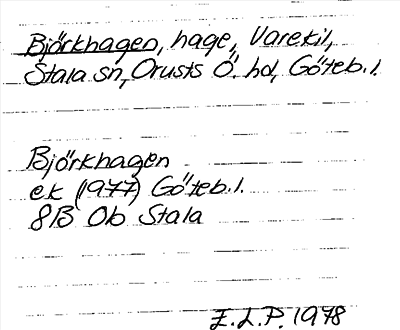 Björkhagen, hage, Varekil,
Stala sn, Orusts Ö. hd, Göteb. l.
Björkhagen
ek (1977) Göteb. l.
8B Ob Stala
E.L.P. 1978